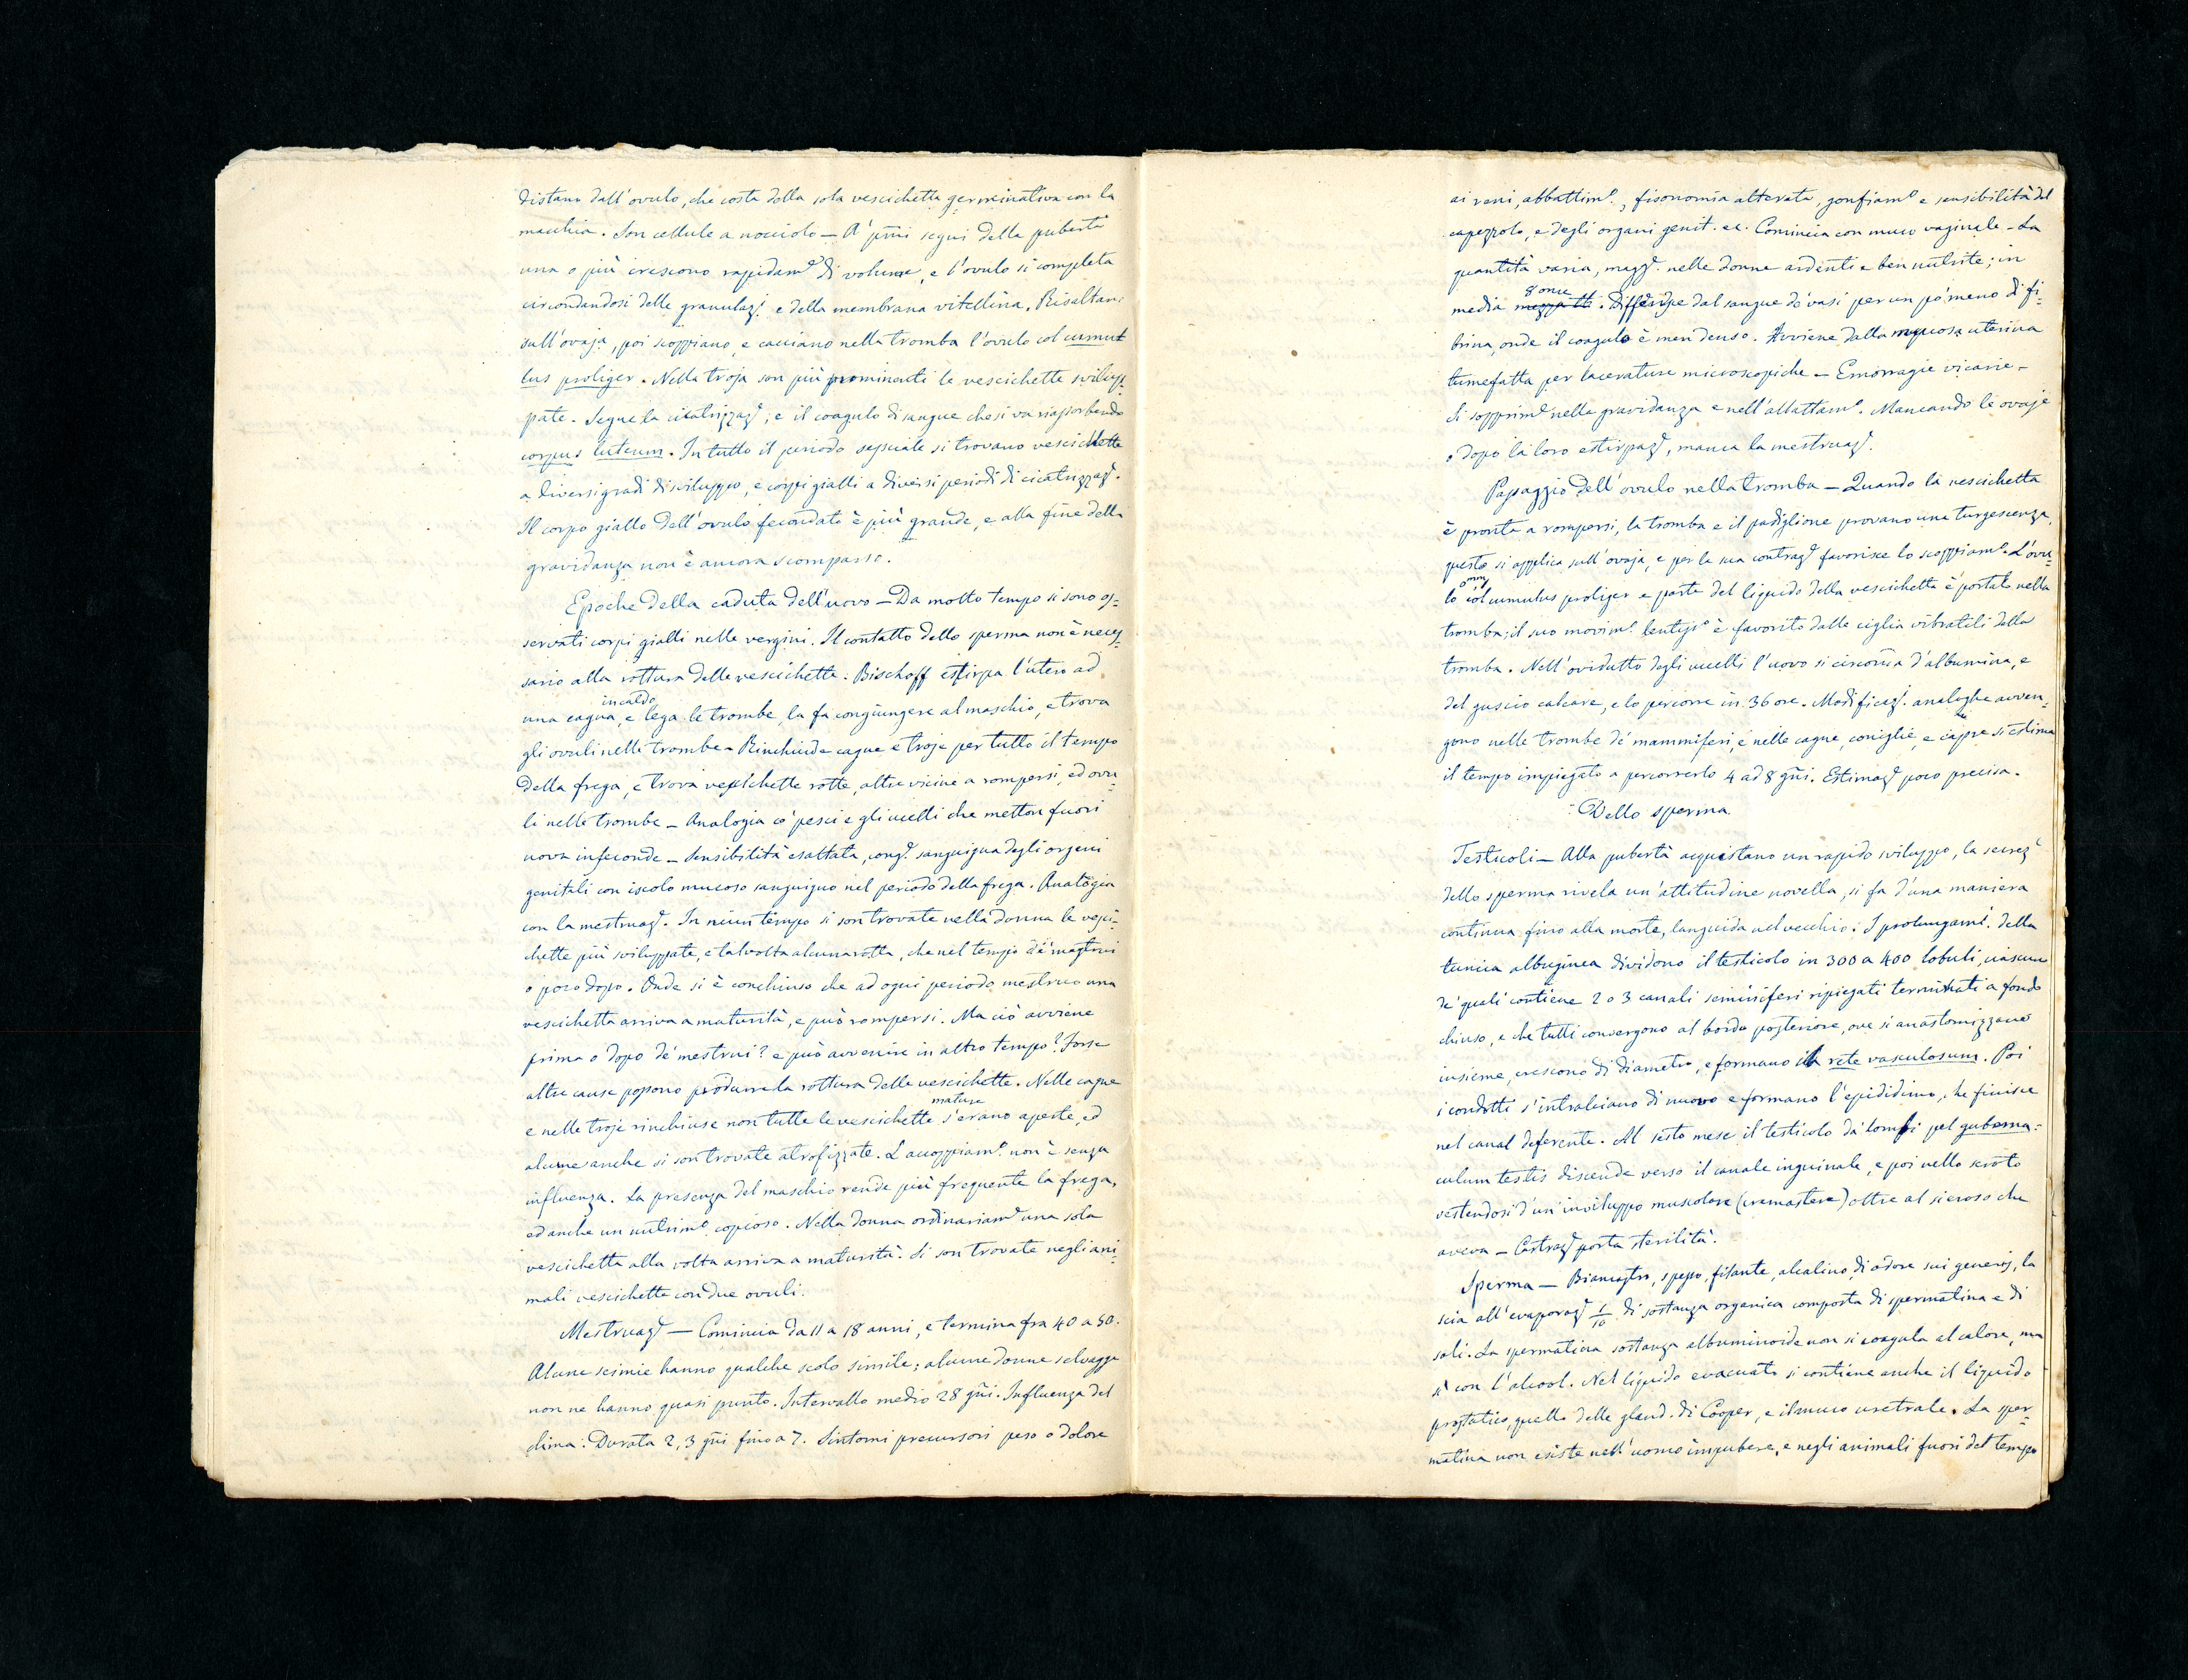 distano dall'ovulo, che costa della sola vescichetta germinativa con la
macchia. Son cellule a nocciolo — A' p̃mi segni della pubertà
una o più crescono rapidam.e di volume, e l'ovulo si completa
circondandosi delle granulaz.i e della membrana vitellina. Risaltano
sull'ovaja, poi scoppiano e cacciano nella tromba l'ovulo col cumul
lus proliger. Nella troja son più prominenti le vescichette svilup=
pate. Segue la cicatrizzaz.e, e il coagulo di sangue che si va riassorbendo
corpus luteum. In tutto il periodo sessuale si trovano vescichette
a diversi gradi di sviluppo, e corpi gialli a diversi periodi di cicatrizzaz.e.
Il corpo giallo dell'ovulo fecondato è più grande, e alla fine della
gravidanza non è ancora scomparso.
Epoche della caduta dell'uovo — Da molto tempo si sono os=
servati corpi gialli nelle vergini. Il contatto dello sperma non è neces=
sario alla rottura delle vescichette. Bischoff estirpa l'utero ad
in caldo
una cagna, e lega le trombe, la fa congiungere al maschio, e trova
gli ovuli nelle trombe — Rinchiude cagne e troje per tutto il tempo
della frega, e trova vescichette rotte, altre vicine a rompersi, ed ovu
li nelle trombe — Analogia co' pesci e gli uccelli che metton fuori
uova infeconde — Sensibilità esaltata, cong.e sanguigna degli organi
genitali con iscolo mucoso sanguigno nel periodo della frega. Analogia
con la mestruaz.e. In niun tempo si son trovate nella donna le vesci=
chette più sviluppate, e talvolta alcuna rotta, che nel tempo de' mestrui
o poco dopo. Onde si è conchiuso che ad ogni periodo mestruo una
vescichetta arriva a maturità, e può rompersi. Ma ciò avviene
prima o dopo de' mestrui? e può avvenire in altro tempo? Forse
altre cause possono produrre la rottura delle vescichette. Nelle cagne
mature
e nelle troje rinchiuse non tutte le vescichette s'erano aperte, ed
alcune anche si son trovate atrofizzate. L'accoppiam.o non è senza
influenza. La presenza del maschio rende più frequente la frega,
ed anche un nutrim.o copioso. Nella donna ordinariam.e una sola
vescichetta alla volta arriva a maturità. Si son trovate negli ani=
mali vescichette con due ovuli.
Mestruaz.e — Comincia da 11 a 18 anni, e termina fra 40 a 50.
Alcune scimie hanno qualche scolo simile; alcune donne selvagge
non ne hanno quasi punto. Intervallo medio 28 gñi. Influenza del
clima. Durata 2, 3 gñi fino a 7. Sintomi precursori peso o dolore
ai reni, abbattim.o, fisonomia alterata, gonfiam.o e sensibilità del
capezzolo, e degli organi genit. ec. Comincia con muco vaginale — La
quantità varia, magg.e nelle donne ardenti e ben nutrite; in
8 once
media mezza lb. Differisce dal sangue de' vasi per un po' meno di fi=
brina, onde il coagulo è men denso. Avviene dalla mucosa uterina
tumefatta per lacerature microscopiche — Emorragie vicarie —
Si sopprim.e nella gravidanza e nell'allattam.o. Mancando le ovaje
o dopo la loro estirpaz.e, manca la mestruaz.e.
Passaggio dell'ovulo nella tromba — Quando la vescichetta
è pronta a rompersi, la tromba e il padiglione provano una turgescenza,
questo si applica sull'ovaja, e per la sua contraz.e favorisce lo scoppiam.o. L'ovu=
lo col cumulus proliger e parte del liquido della vescichetta è portato nella
tromba; il suo movim.o lentiss.o è favorito dalle ciglia vibratili della
tromba. Nell'ovidutto degli uccelli l'uovo si circonda d'albumina, e
del guscio calcare, e lo percorre in 36 ore. Modificaz.i analoghe avven=
gono nelle trombe de' mammiferi, e nelle cagne, coniglie, e capre si estima
il tempo impiegato a percorrerlo 4 ad 8 gñi. Estimaz.e poco precisa.
Dello sperma.
Testicoli — Alla pubertà acquistano un rapido sviluppo, la secrez.e
dello sperma rivela un'attitudine novella, si fa d'una maniera
continua fino alla morte, languida nel vecchio. I prolungam.i della
tunica albuginea dividono il testicolo in 300 a 400 lobuli, ciascuno
de' quali contiene 2 o 3 canali seminiferi ripiegati terminati a fondo
chiuso, e che tutti convergono al bordo posteriore, ove si anastomizzano
insieme, crescono di diametro, e formano il rete vasculosum. Poi
i condotti s'intralciano di nuovo e formano l'epididimo, che finisce
nel canal deferente. Al sesto mese il testicolo da' lombi pel guberna=
culum testis discende verso il canale inguinale, e poi nello scroto
vestendosi d'un inviluppo muscolare (cremastere) oltre al sieroso che
aveva — Castraz.e porta sterilità.
Sperma — Biancastro, spesso, filante, alcalino, di odore sui generis, la
scia all'evaporaz.e 1/10 di sostanza organica composta di spermatina e di
sali. La spermatina sostanza albuminoide non si coagula al calore, ma
sì con l'alcool. Nel liquido evacuato si contiene anche il liquido
prostatico, quello delle gland. di Cooper, e il muco uretrale. La sper=
matina non esiste nell'uomo impubere, e negli animali fuori del tempo